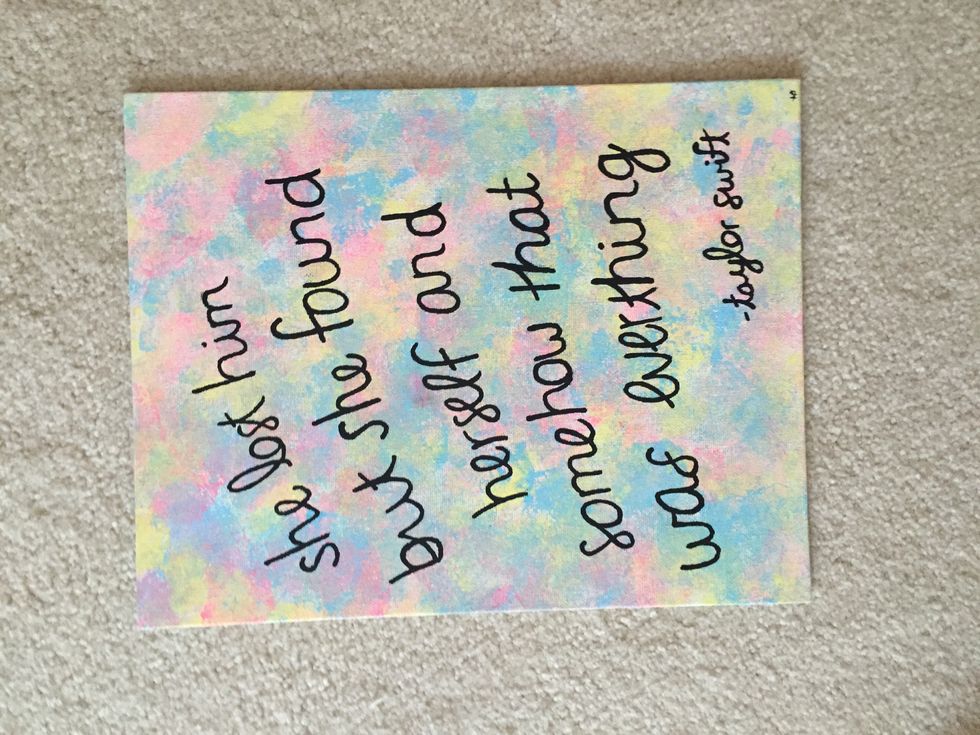 she lost him
but she found
herself and
somehow that
was everthing
-taylor swift